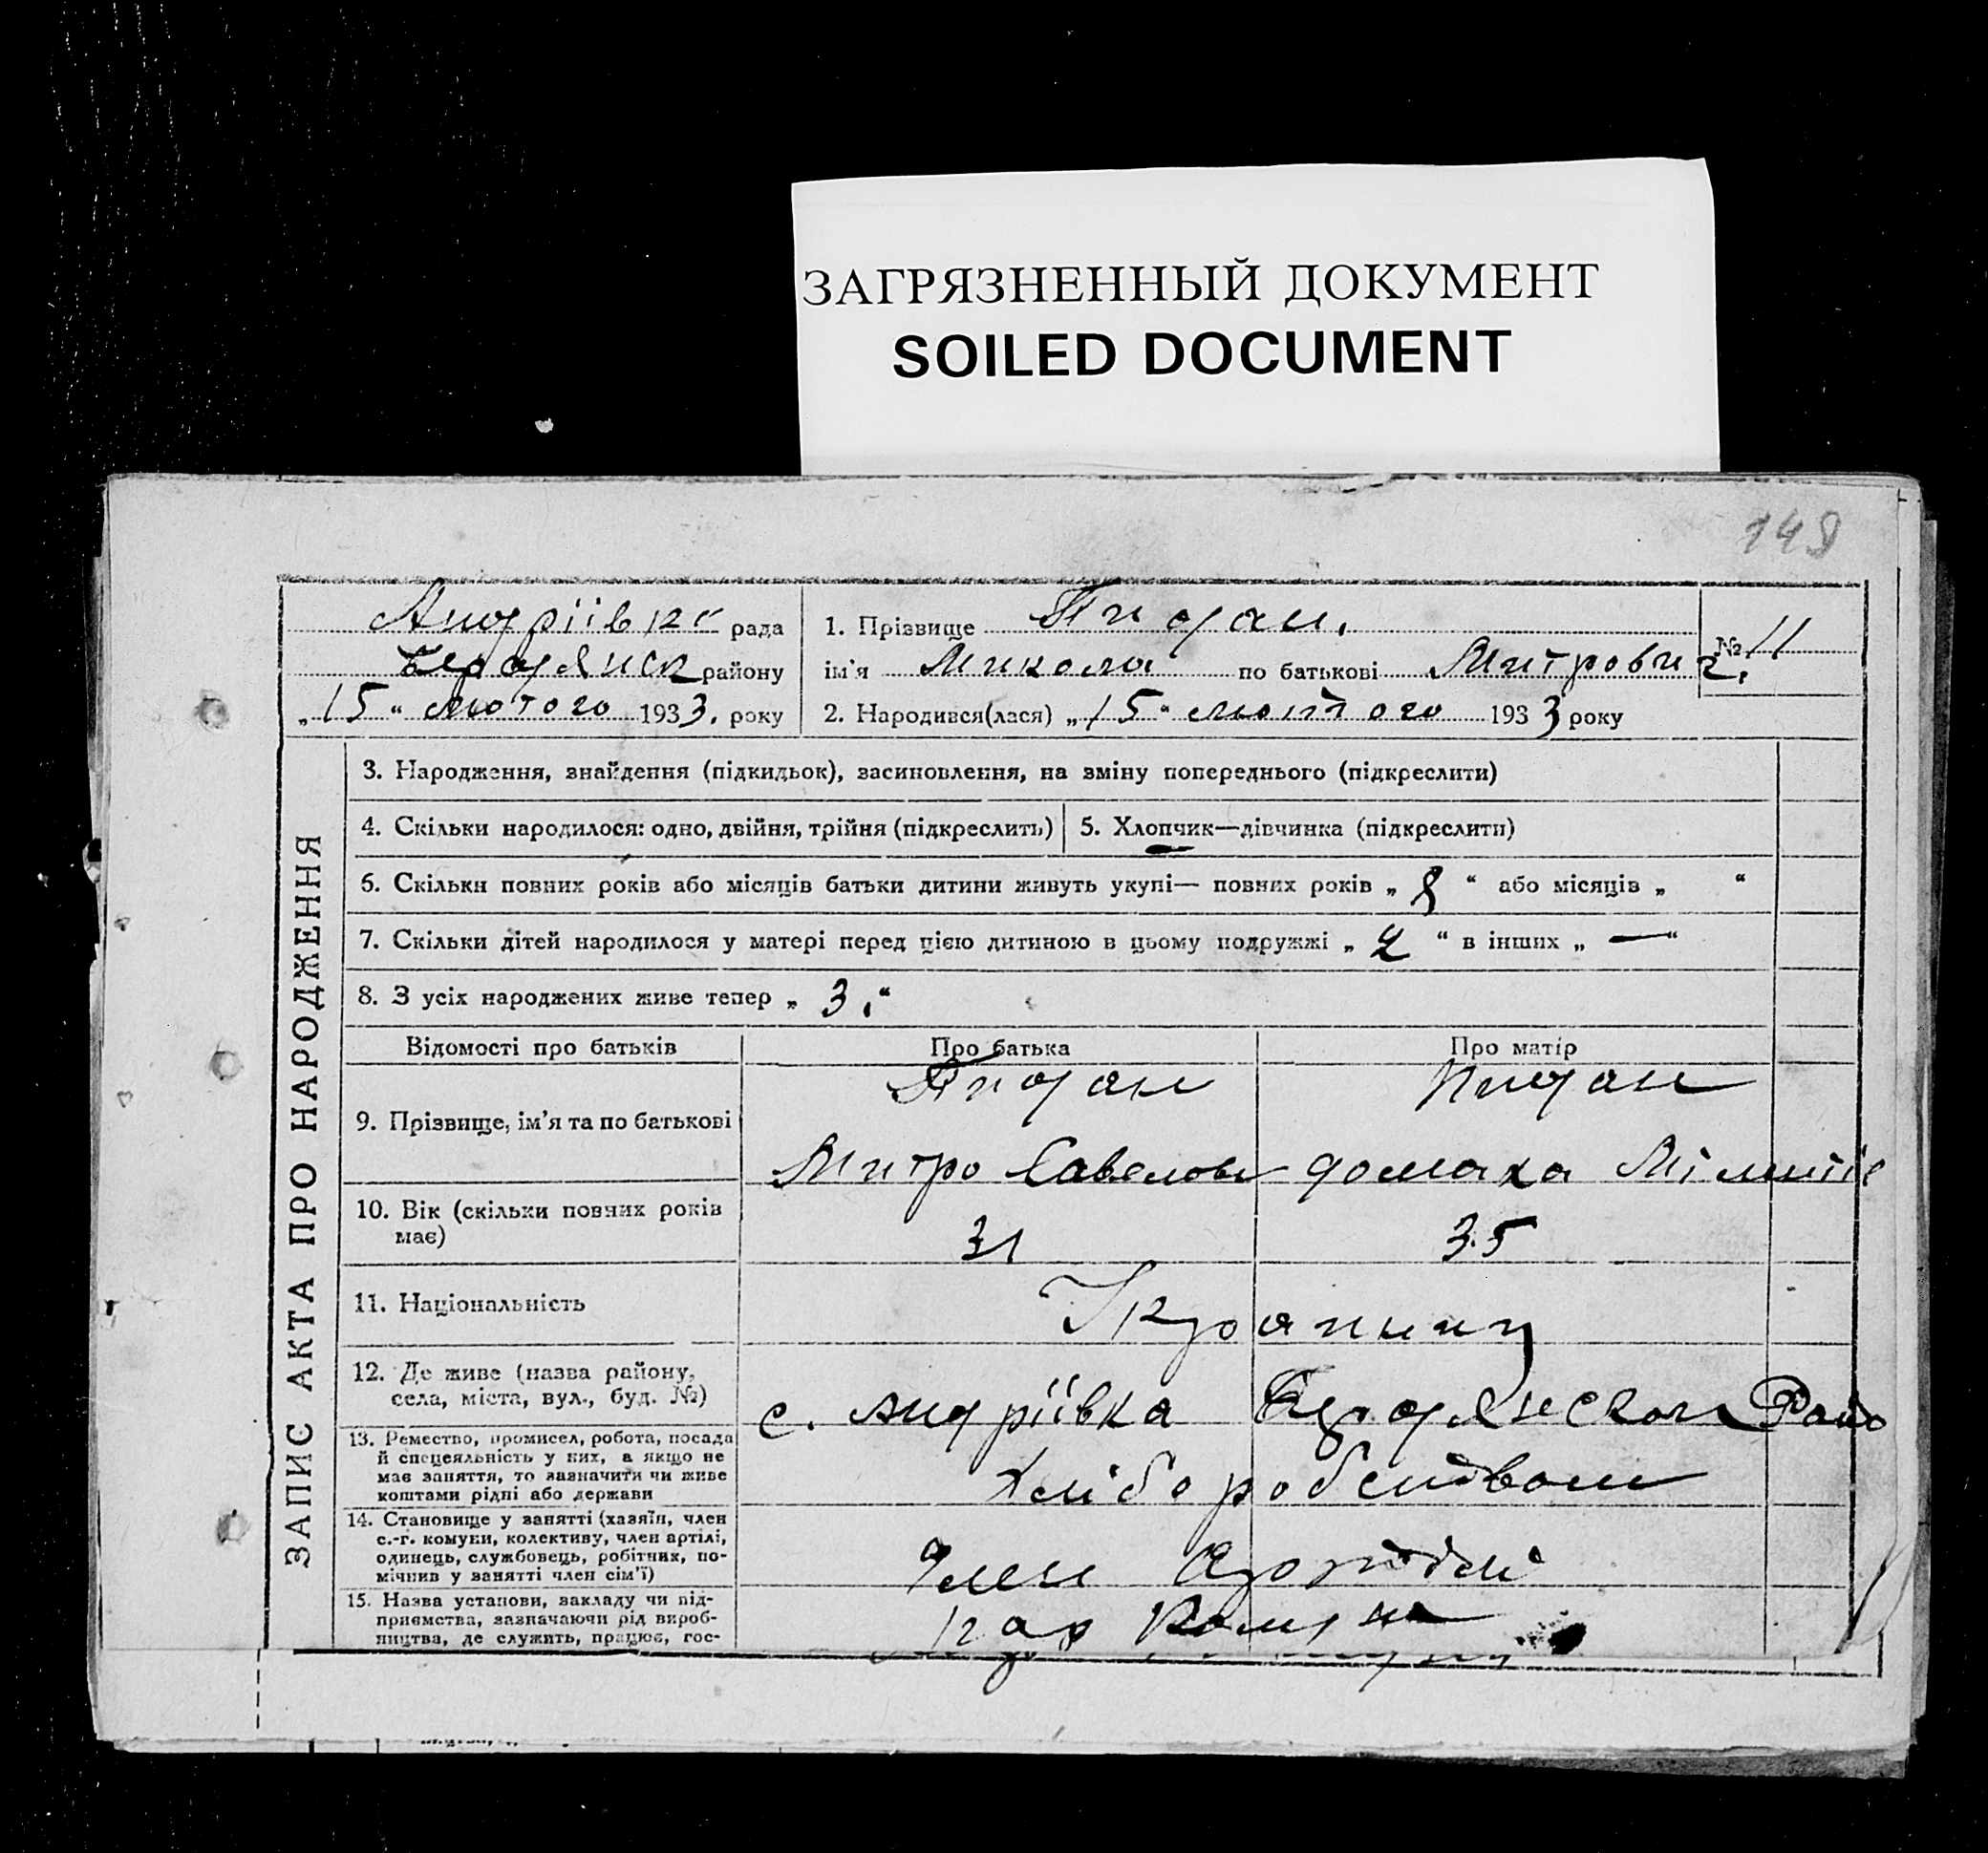 ЗАГРЯЗНЕННЫЙ ДОКУМЕНТ
SOILED DOCUMENT
148
Андріївк рада
Бердянськ району
„ 15 “ лютого 1933. року
1. Прізвище Пидан.
ім'я Микола по батькові Митрович.
№ 11
2. Народився(лася) „ 15 “ лютого 1933 року
ЗАПИС АКТА ПРО НАРОДЖЕННЯ
3. Народження, знайдення (підкидьок), засиновлення, на зміну попереднього (підкреслити)
4. Скільки народилося: одно, двійня, трійня (підкреслить)
5. Хлопчик—дівчинка (підкреслити)
6. Скільки повних років або місяців батьки дитини живуть укупі— повних років „ 8 “ або місяців „ “
7. Скільки дітей народилося у матері перед цією дитиною в цьому подружжі „ 2 “ в інших „ — “
8. З усіх народжених живе тепер „ 3. “
Відомості про батьків Про батька Про матір
9. Прізвище, ім'я та по батькові
Пидан Пидан
Митро Савелов Домаха
10. Вік (скільки повних років має)
31 35
11. Національність
Украинци
12. Де живе (назва району, села, міста, вул., буд. №)
с. Андріївка Бердянском Райо
13. Ремество, промисел, робота, посада
й спецеяльність у них, а якщо не
має заняття, то зазначити чи живе
коштами рідні або держави
Хліборобством
14. Становище у занятті (хазяїн, член
с.-г. комуни, колективу, член артілі,
одинець, службовець, робітник, по-
мічник у занятті член сім'ї)
Член Артілі
15. Назва установи, закладу чи під-
приємства, зазначаючи рід вироб-
ництва, де служить, працює, гос-